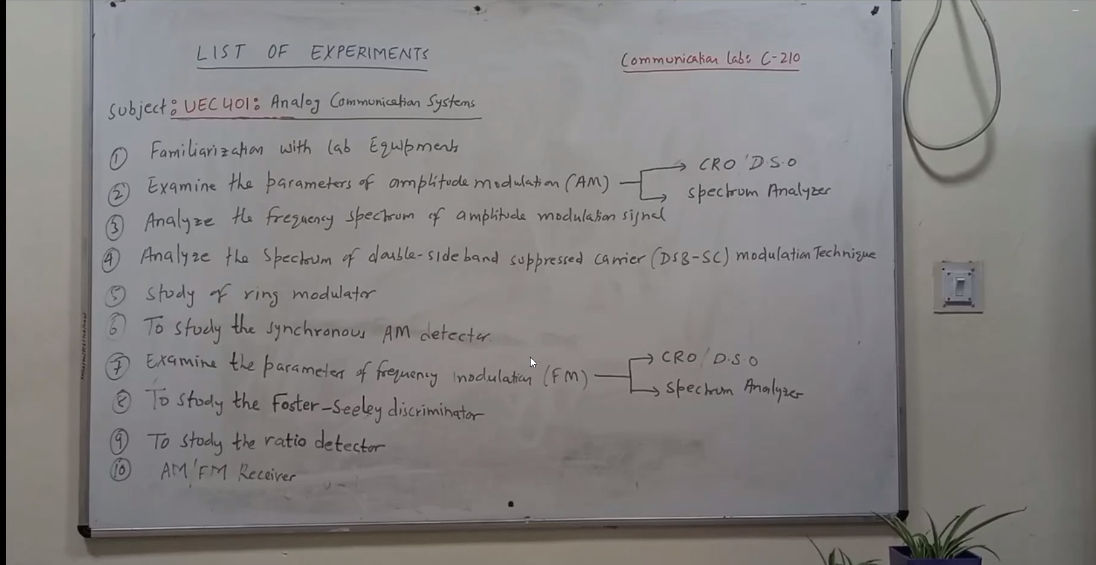 LIST OF EXPERIMENTS
Communication Lab: C-210
Subject: UEC401: Analog Communication Systems
① Familiarization with Lab Equipments
② Examine the parameters of amplitude modulation (AM)
CRO/D.S.O
Spectrum Analyzer
③ Analyze the frequency spectrum of amplitude modulation signal
④ Analyze the Spectrum of double-sideband suppressed carrier (DSB-SC) modulation Technique
⑤ Study of ring modulator
⑥ To study the synchronous AM detector
⑦ Examine the parameters of frequency modulation (FM)
CRO/D.S.O
Spectrum Analyzer
⑧ To study the Foster-Seeley discriminator
⑨ To study the ratio detector
⑩ AM/FM Receiver